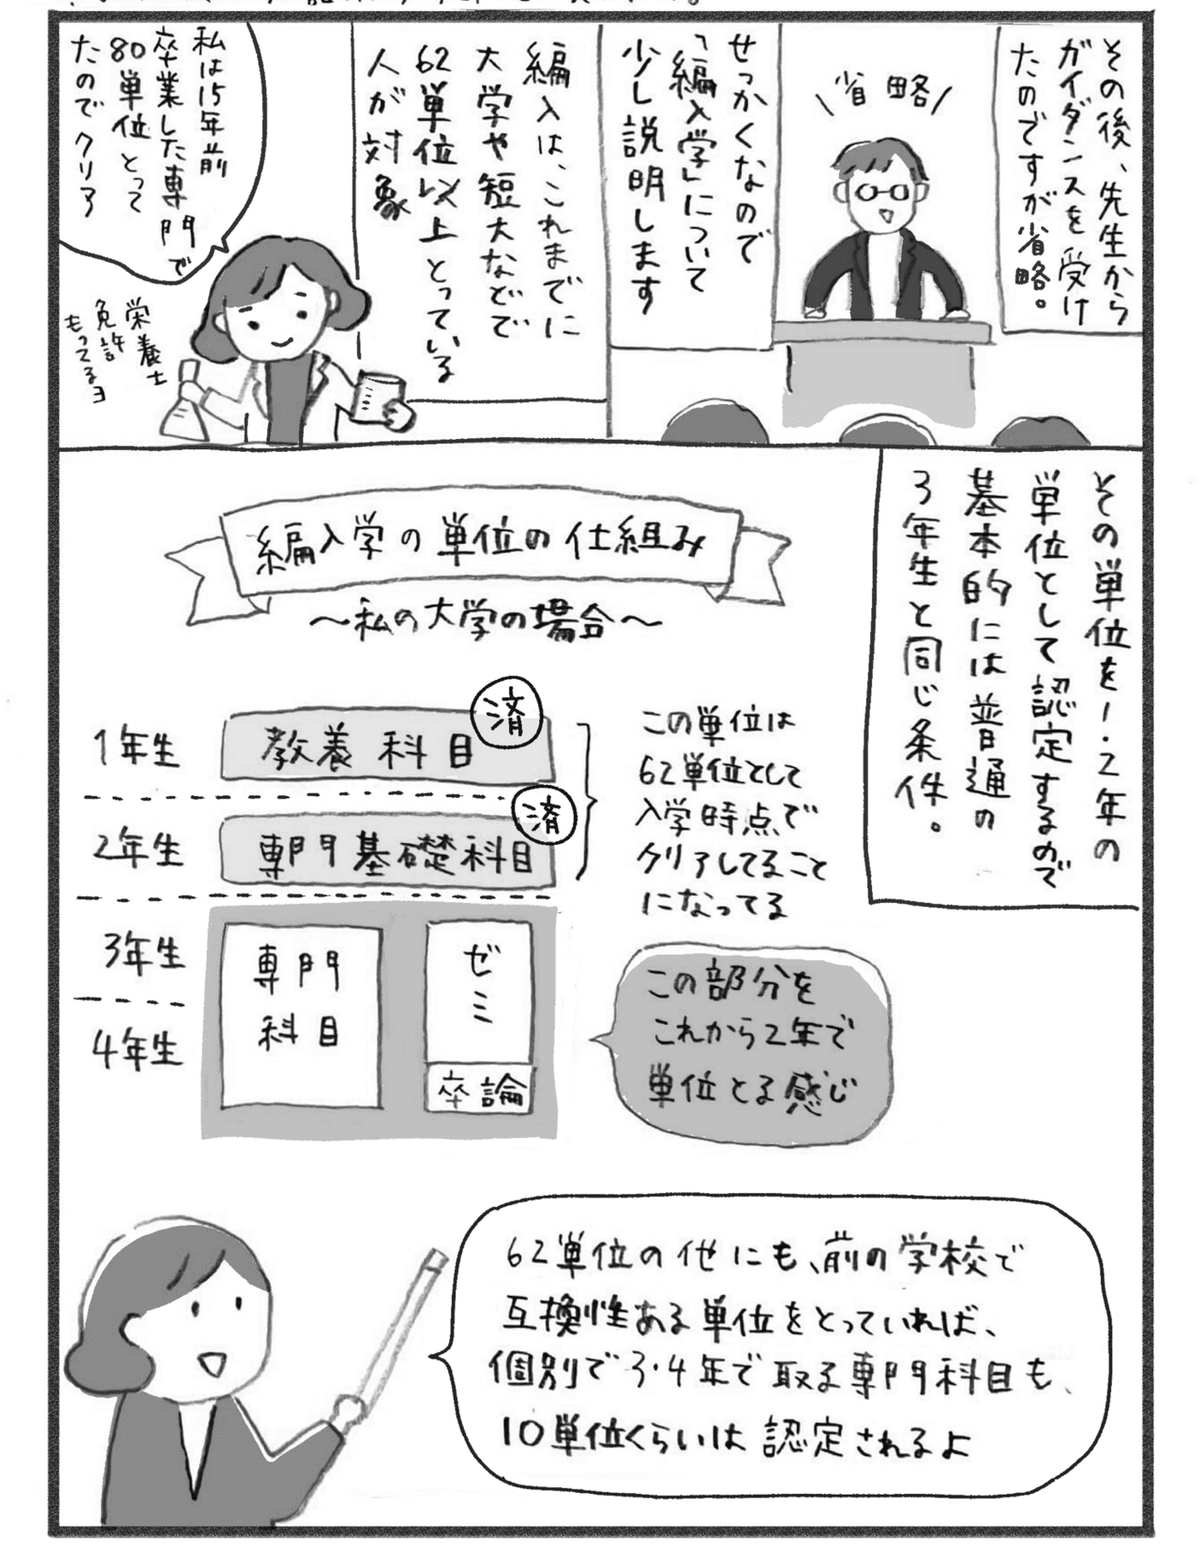 その後、先生から
ガイダンスを受け
たのですが省略。
省略
せっかくなので
「編入学」について
少し説明します
編入は、これまでに
大学や短大などで
62単位以上とっている
人が対象
私は15年前
卒業した専門で
80単位とって
たのでクリア
栄養士
免許
もってるヨ
その単位を1・2年の
単位として認定するので
基本的には普通の
3年生と同じ条件。
編入学の単位の仕組み
〜私の大学の場合〜
1年生
教養科目
済
2年生
専門基礎科目
済
この単位は
62単位として
入学時点で
クリアしてること
になってる
3年生
4年生
専門
科目
ゼミ
卒論
この部分を
これから2年で
単位とる感じ
62単位の他にも、前の学校で
互換性ある単位をとっていれば、
個別で3・4年で取る専門科目も、
10単位くらいは認定されるよ